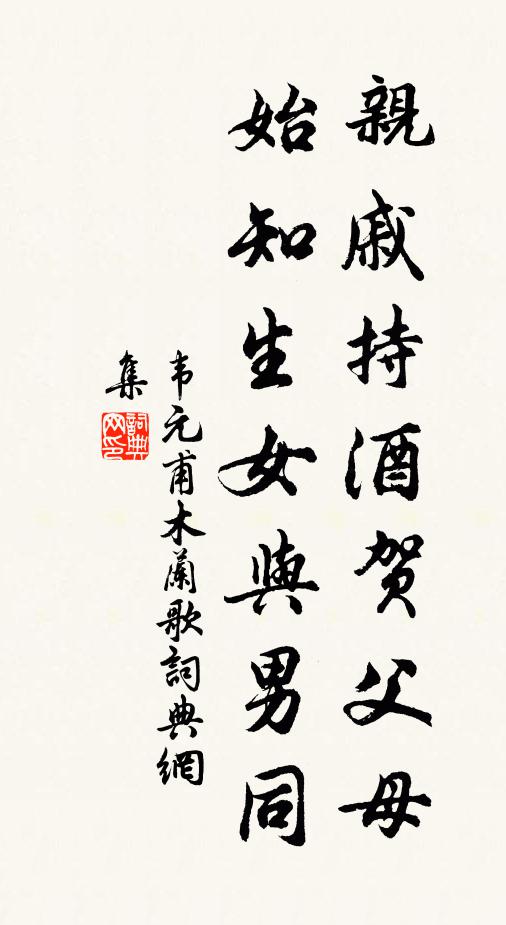 親戚持酒贺父母
始知生女與男同
韦元甫木蘭歌詞典網
集
詞典網印